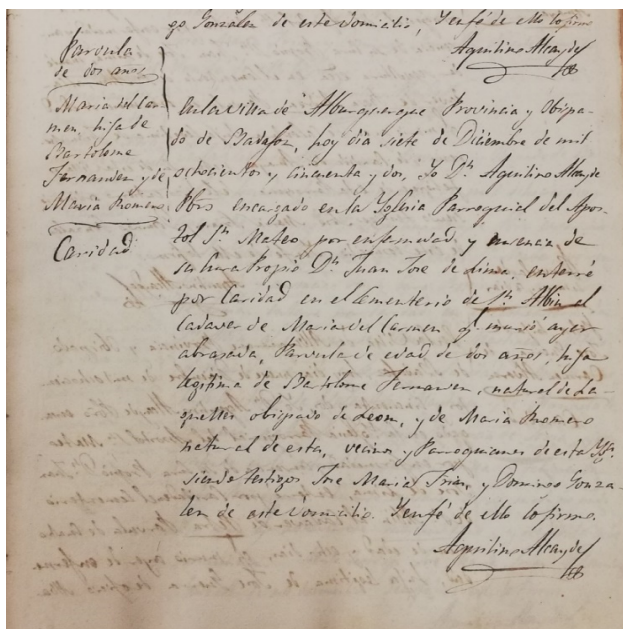 go Gonzalez de este domicilio, Yenfé de ello lo firmo
Aquilino Alcayde
Parvula
de dos años
Maria del Car-
men, hija de
Bartolome
Fernanden y de
Maria Romero
Caridad
En la villa de Alburquerque Provincia y Obispa-
do de Badajoz, hoy dia siete de Diciembre de mil
ochocientos y cincuenta y dos, Yo Dn. Aquilino Alcayde
Pbro encargado en la Yglesia Parroquial del Apos-
tol Sn. Mateo por enfermedad y ausencia de
su Cura Propio Dn. Juan Jose de Lima, enterré
por Caridad en el Cementerio de Sn. Albin el
Cadaver de Maria del Carmen q. murió ayer
abrasada, Parvula de edad de dos años, hija
legitima de Bartolome Fernanden, natural de
obispado de Leon, y de Maria Romero
natural de esta, vecinos y Parroquianos de esta Ygª.
siendo testigos Jose Maria y Domingo Gonza-
len de este domicilio. Yenfé de ello lo firmo.
Aquilino Alcayde